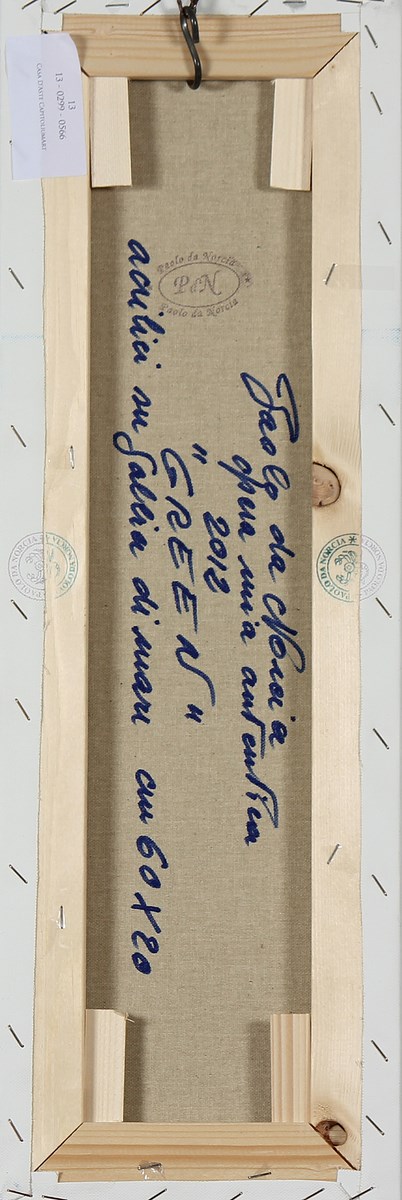 13
13 - 0299 - 0566
CASA D'ARTE CAPITOLIUMART
Paolo da Norcia
PdN
Paolo da Norcia
Paolo da Norcia
opera mia autentica
2012
"GREEN"
acrilici su sabbia di mare cm 60 X 20
PAOLO DA NORCIA
PAOLO DA NORCIA